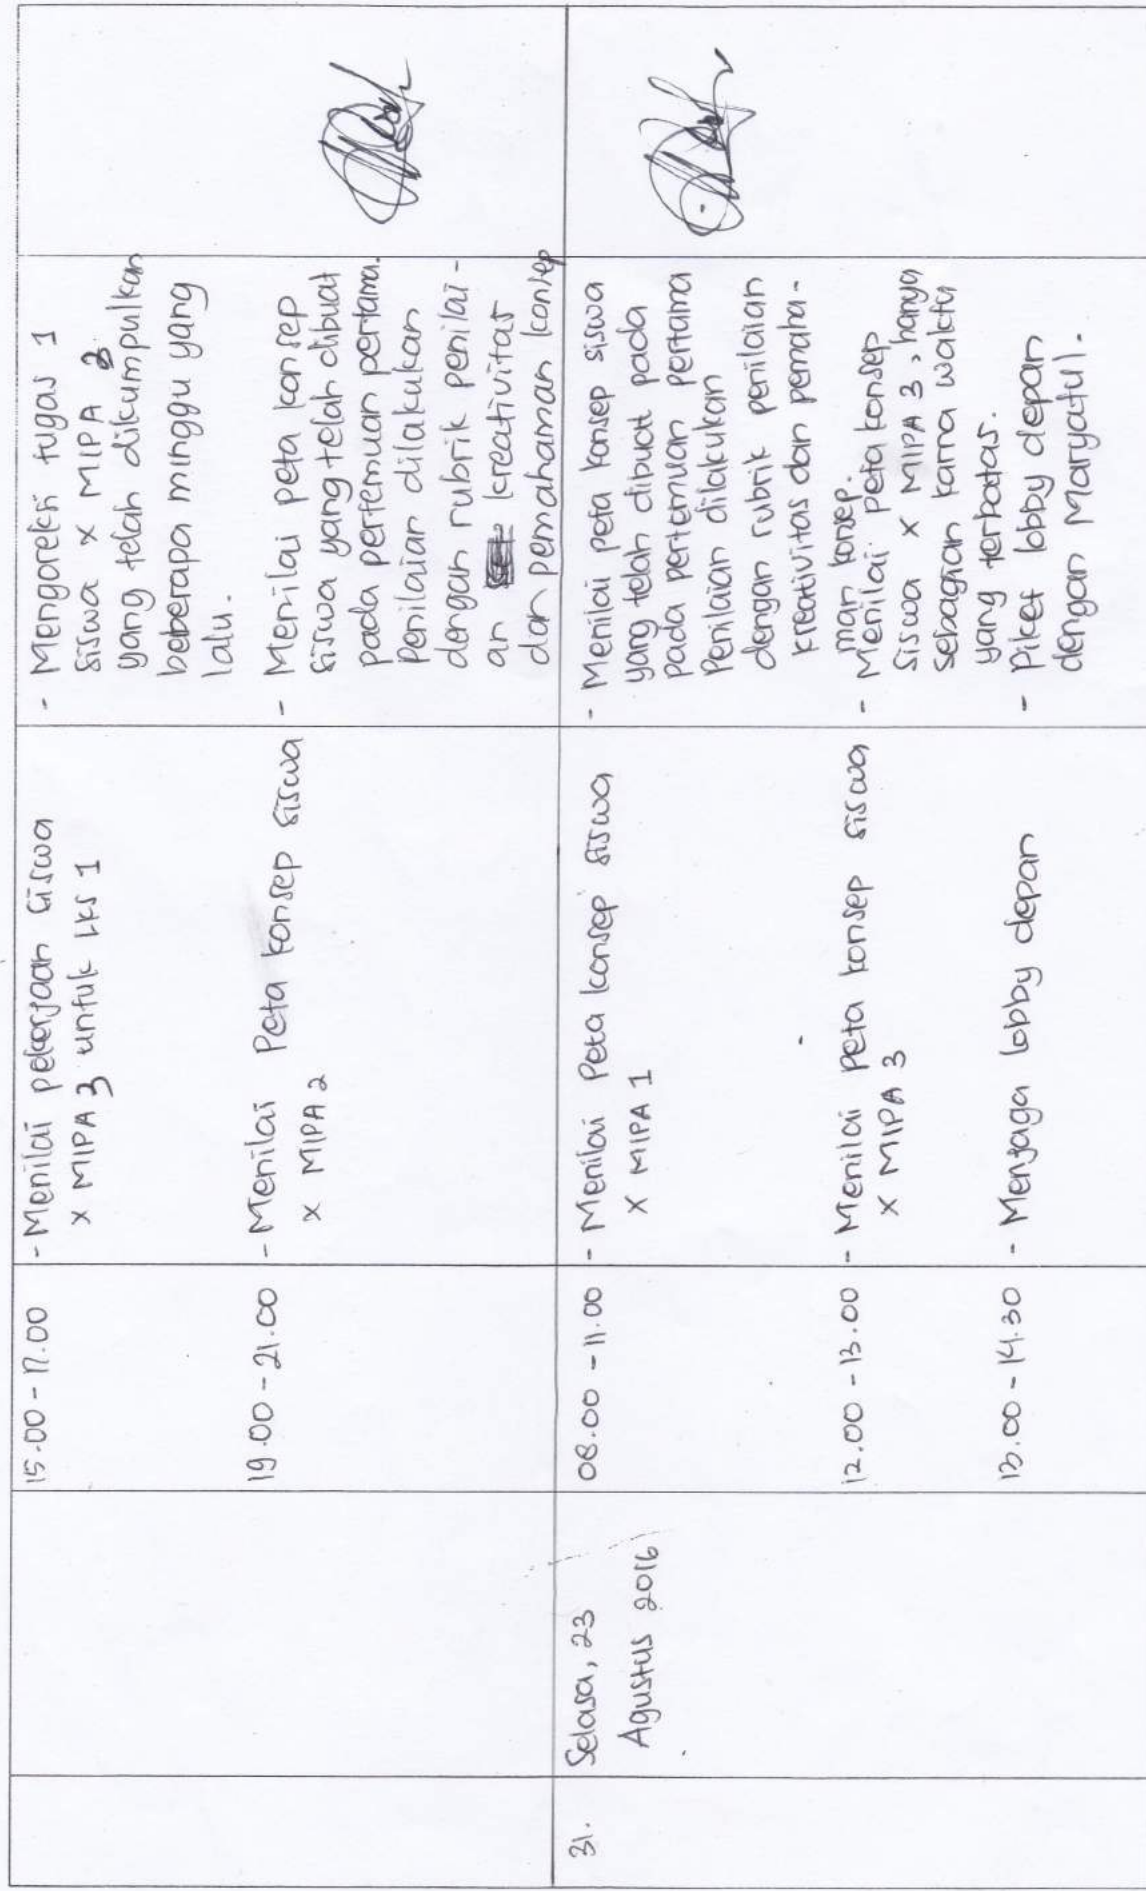 15.00 - 17.00
- Menilai pekerjaan siswa
X MIPA 3 untuk LKS 1
- Mengoreksi tugas 1
siswa X MIPA 3
yang telah dikumpulkan
beberapa minggu yang
lalu.
19.00 - 21.00
- Menilai Peta konsep siswa
X MIPA 2
- Menilai peta konsep
siswa yang telah dibuat
pada pertemuan pertama.
Penilaian dilakukan
dengan rubrik penilai-
an kreativitas
dan pemahaman konsep
31.
Selasa, 23
Agustus 2016
08.00 - 11.00
- Menilai Peta konsep siswa
X MIPA 1
- Menilai peta konsep siswa
yang telah dibuat pada
pada pertemuan pertama
Penilaian dilakukan
dengan rubrik penilaian
kreativitas dan pemaha-
man konsep.
12.00 - 13.00
- Menilai peta konsep siswa
X MIPA 3
- Menilai peta konsep
siswa X MIPA 3, hanya
sebagian karna waktu
yang terbatas.
13.00 - 14.30
- Menjaga lobby depan
- Piket lobby depan
dengan Maryatul.